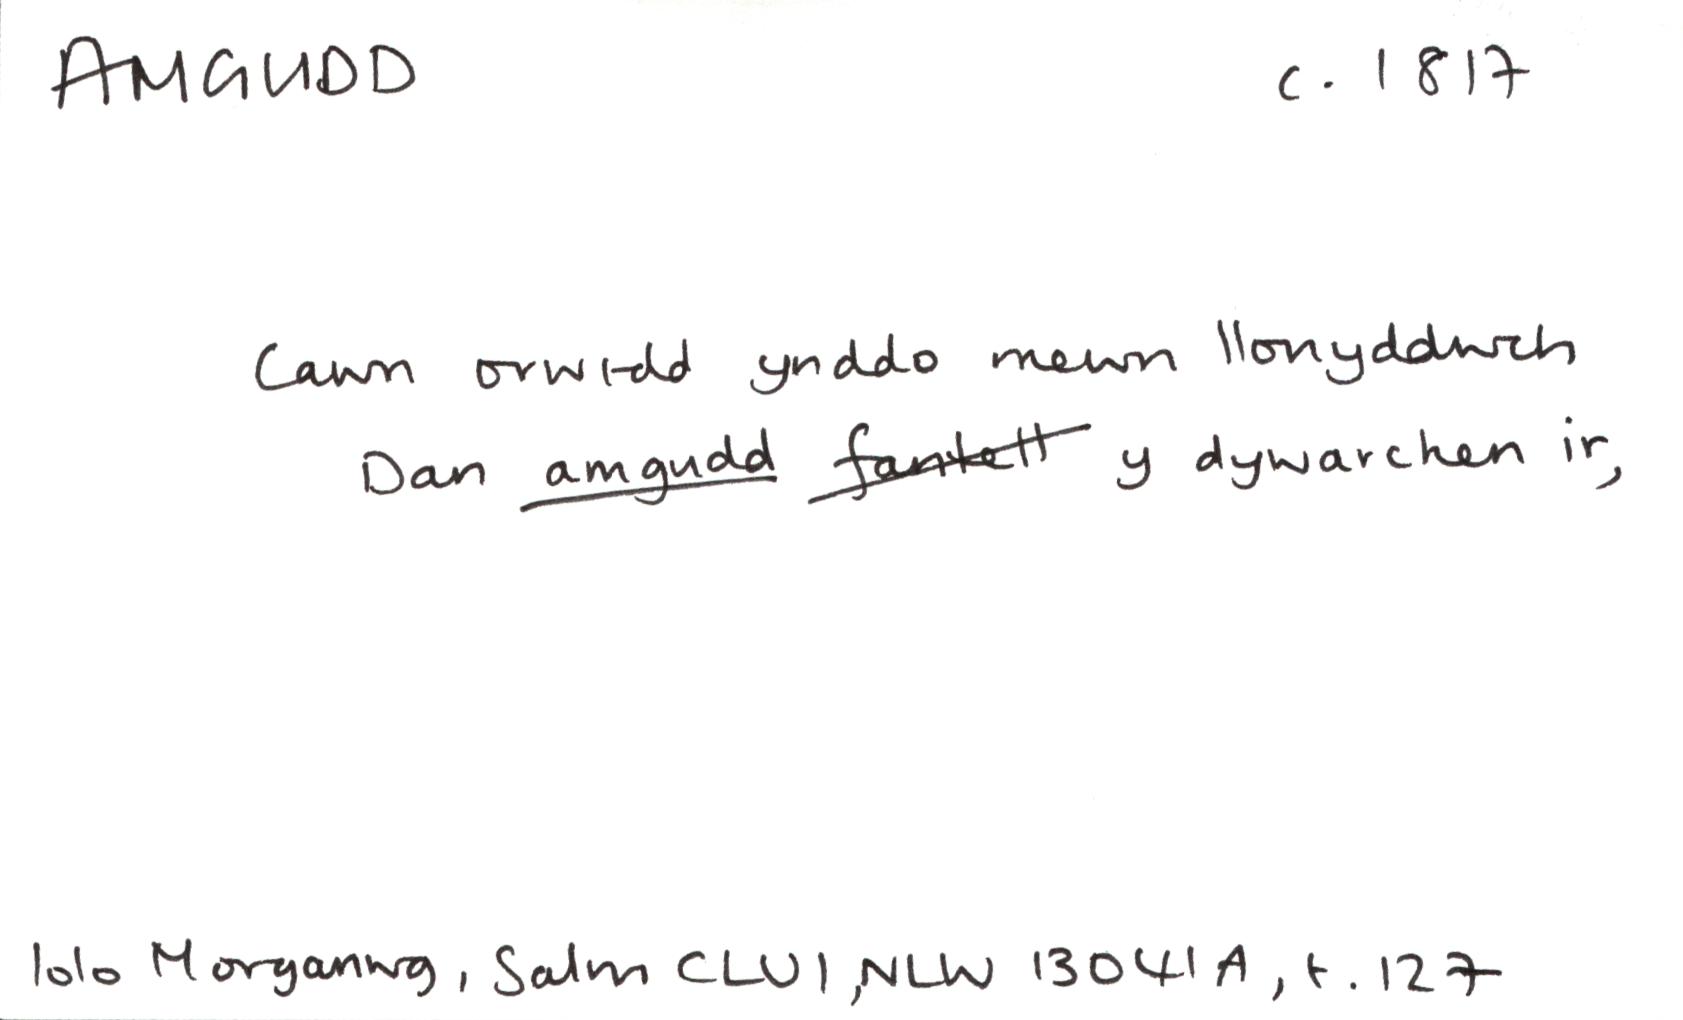 AMGUDD c. 1817
Cawn orwedd ynddo mewn llonyddwch
Dan amgudd fantell y dywarchen ir,
Iolo Morganwg, Salm CLVI, NLW 13041A, t. 127